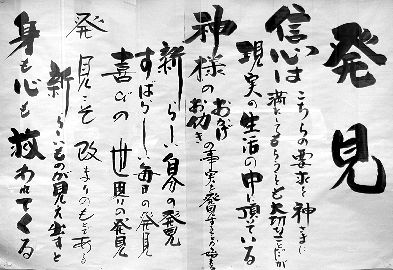 発見
信心は
こちらの要求を神さまに
満たしてもらうことも大切なことだが
現実の生活の中に頂いている
神様の
おかげ
お働き
の事実を発見することが始まる
新らしい自分の発見
すばらしい毎日の発見
喜びの世界の発見
発見こそ改まりのもとである
新らしいものが見え出すと
身も心も救われてくる